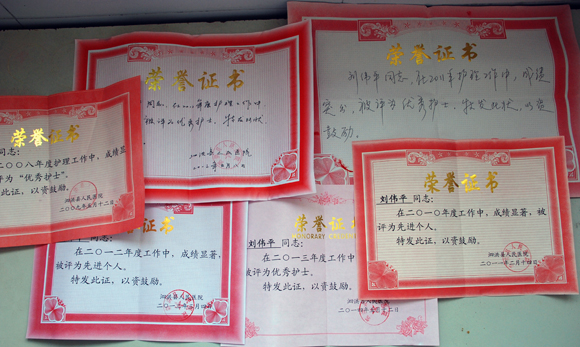 荣誉证书
同志：
二〇〇八年度护理工作中，成绩显
评为“优秀护士”。
发此证，以资鼓励。
泗洪县人民医院
二〇〇九年五月十二日
荣誉证书
同志，在二〇一一年度护理工作中，
被评为优秀护士，特发此状，
泗洪县人民医院
荣誉证书
刘伟平同志，在2011年护理工作中，成绩
突出，被评为优秀护士，特发此状，以资
鼓励。
荣誉证书
刘伟平 同志：
在二〇一〇年度工作中，成绩显著，被
评为先进个人。
特发此证，以资鼓励。
泗洪县人民医院
二〇一一年二月十四日
荣誉证书
同志：
在二〇一二年度工作中，成绩显著，
被评为先进个人。
特发此证，以资鼓励。
泗洪县人民医院
荣誉证
HONORARY
刘伟平 同志：
在二〇一三年度工作中，成
被评为优秀护士。
特发此证，以资鼓励。
泗洪县人民医院